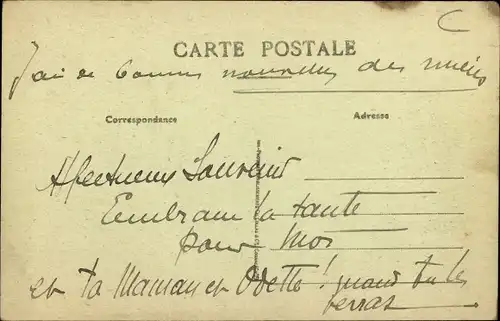 C
CARTE POSTALE
J'ai de bonnes nouvelles des miens
Correspondance Adresse
Affectueux Souvenir
Embrasse la tante
pour Moi
et ta Maman et Odette! quand tu les
verras